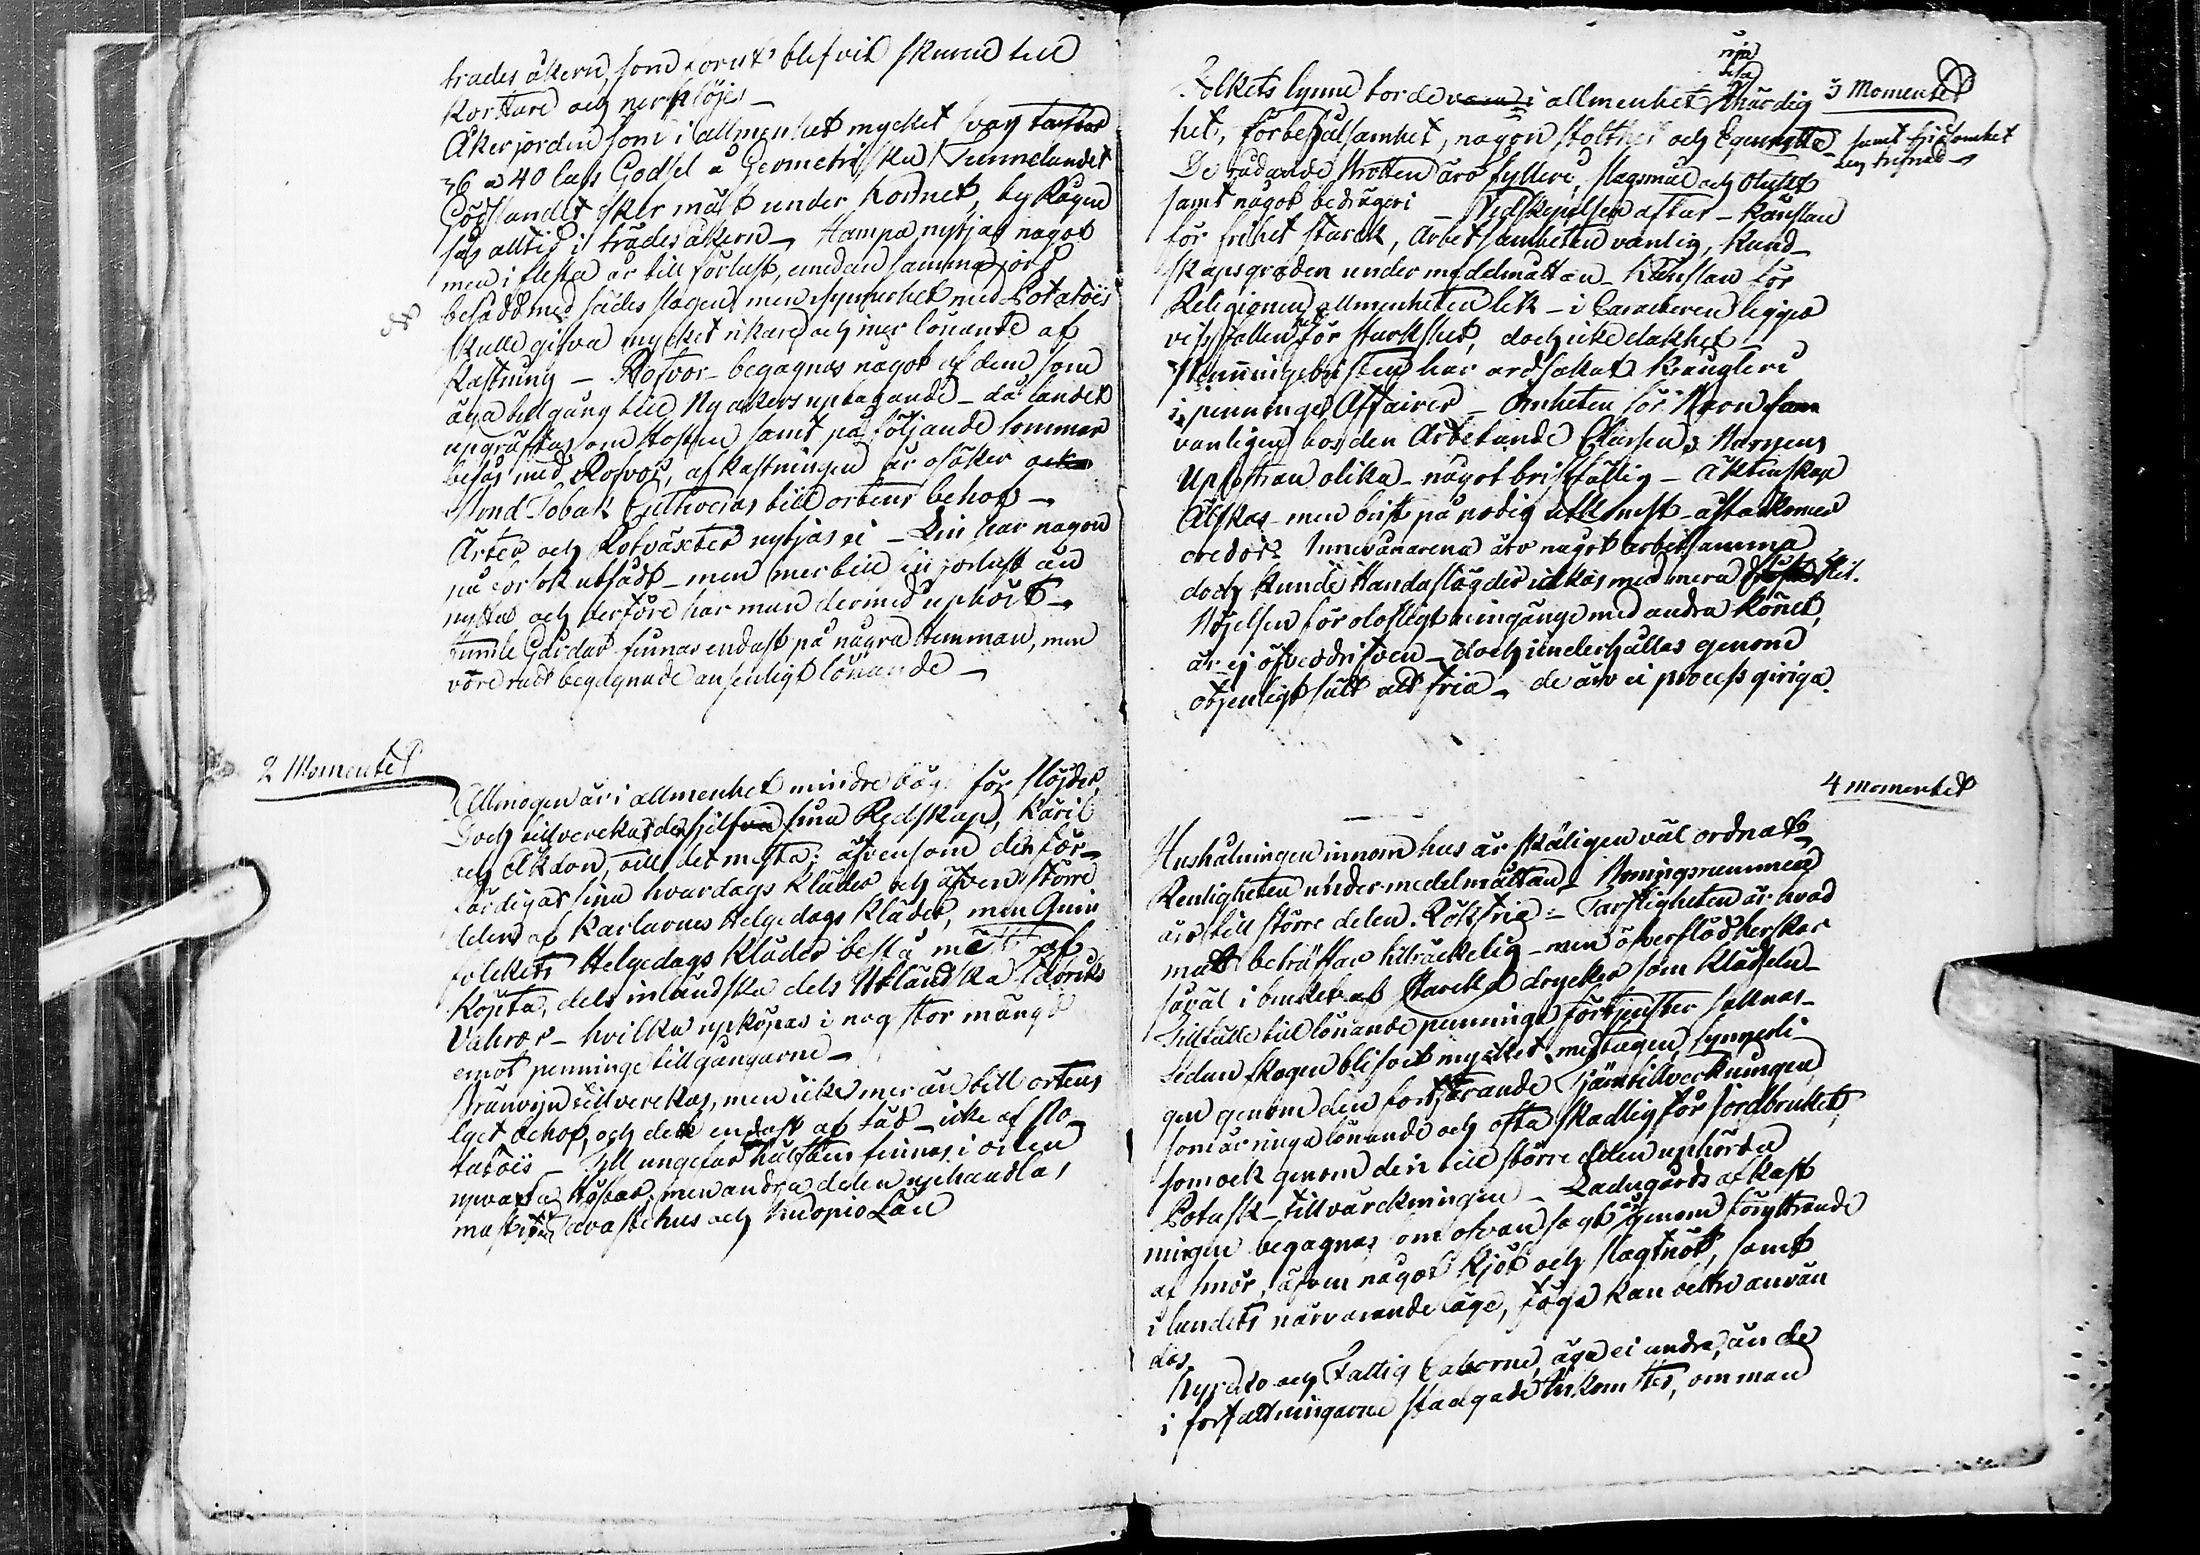 trädes åkern, som forut blifvit skuren till
kortare och nerplöjes _
Åkerjorden som i allmenhet mycket svag
36 a 40 lass Gödsel å Geometriska Tunnelandet
Gödslandet sker mäst under kornet, ty Rågen
sås alltid i trädesåkern _ Hampa nytjas något
men i flesta år till förlust, emedan samma jord
besådd med sädes slagen men synnerhet med Potatoïs
skulle gifva mycket rikare och mer lönande af
kastning _ Rofvor _ begagnas något af dem som
äga tillgång till Ny åkers uptagande _ då landet
upgräftas om Hösten samt på följande sommar
besås med Rofvor, afkastningen är osäker
Tobak Cultiveras till ortens behof _
Ärter och Rotväxter nytjas ei _ Lin har någon
på försök utsådt _ men mer till förlust än
nytta och derföre har man dermed uphört _
Humle Gårdar finnas endast på några Hemman, men
vore rätt begagnade ansenligt lönande _
2 Momentet
Allmogen är i allmenhet mindre för slöjder,
Doch tillverckas de sina Redskap, Käril
och Åkdon, till det mesta; äfvensom der för-
färdigas sina hvardags kläder och äfven större
delen af Karlarnes Helgedags kläder, men Quin
folckets Helgedags Kläder bestå mest af
Köpta, dels inländska dels Utländska Fabriks
Vahror _ hvilka upköpas i nog stor mängd
emot penninge tillgångarne _
Bränvin tillverckas, men icke mer än till ortens
eget behof, och det endast af säd _ icke af Po_
tatoïs _ Till ungefär hälften finnes i orten
andra delen uphandlas
mäst ifrån Tavastehus och Kuopio Län
3 Momentet
Folkets lynne torde i allmenhet
het, förbehålsamhet, någon stolthet och Egennytta _ samt
De rådande Brotten äro fylleri, slagsmål och Otukt
samt något bedrägeri _ Vidskepelsen aftar _ Känslan
för frihet starck, Arbetsamheten vanlig, Kund_
skapsgraden under medelmåttan _ Känslan för
Religionen i allmenheten lik _ i Caracteren ligger
viss fallenhet för starkhet, doch icke elakhet
har ordsakat Krångleri
i penninge Affairer _ Ömheten för Barn
vanligen hos den Arbetande Classen, Barnens
Upfostran olika _ något bristfällig _ Äktenskap
Älskas _ men brist på nödig utkomst
Innevånarena äro något arbetsamma
doch kunde Handaslögder idkas med mera flit.
Böjelsen för olofligt umgänge med andra könet,
är ej öfverdrifven _ doch underhålles genom
otjenligt sätt att fria _ de äro ei process giriga.
4 momentet
Hushålningen innom hus är skäligen väl ordnat,
Renligheten under medelmåttan _ Boningsrummen
äro till större delen Rökfria _ Tarfligheten är hvad
mat beträffar tilräckelig _ men öfverflöd herskar
såväl i bruket af starcka drycker som klädseln _
Tillfälle till lönande penninge förtjenster saknas _
sedan skogen blifvit mycket medtagen, synnerli_
gen genom den fortfarande Tjärtillverkningen,
som är ringa lönande och ofta skadlig för jordbruket,
som ock genom den till större delen uphörda
Potask _ tillvärckningen _ Ladugårds afkast
ningen begagnas som ofvan sagt är genom föryttrande
af smör, äfven något kjöt och slagtnöt, samt
i landets närvarande läge, föga kan bettre använ
das.
Kyrcko och Fattig Caborne, äga ei andra, än de
i författningarne stadgade Inkomster, om man